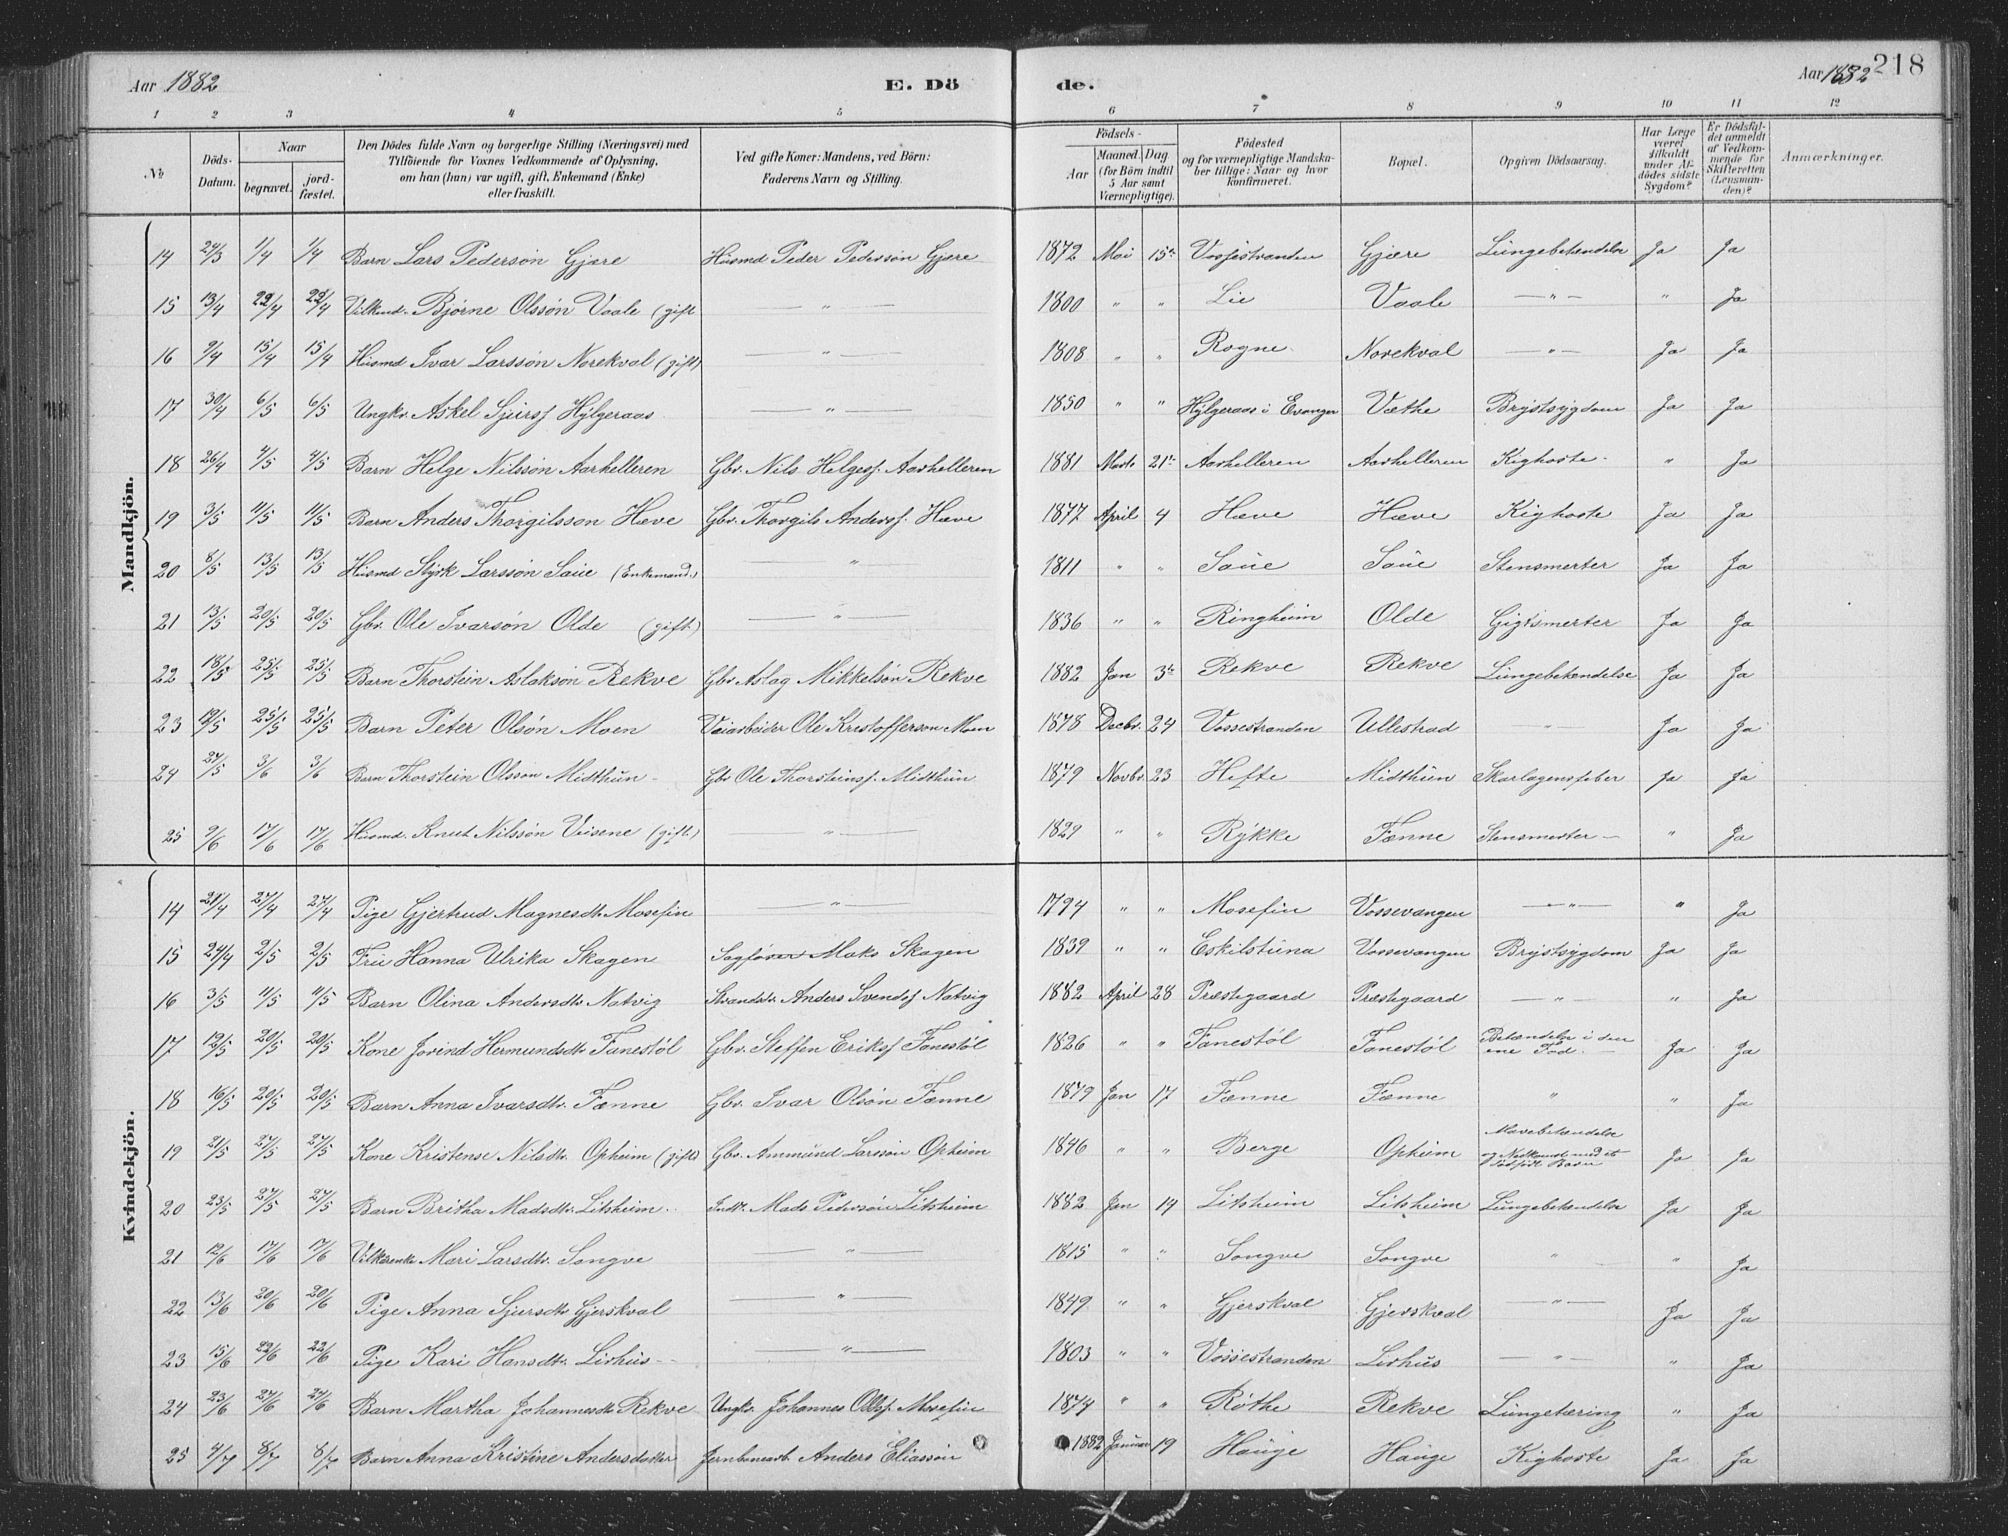 Aar 1882 E. Dö de. Aar 1882 218
1 2 3 4 5 6 7 8 9 10 11 12
No Döds-Datum. Naar begravet. jord-fæstet. Den Dödes fulde Navn og borgerlige Stilling (Næringsvei) med Tilföiende for Voxnes Vedkommende af Oplysning, om han (hun) var ugift, gift, Enkemand (Enke) eller fraskilt. Ved gifte Koner: Mandens, ved Börn: Faderens Navn og Stilling. Födsels- Aar Maaned. Dag (for Börn indtil 5 Aar samt Værnepligtige). Födested og for værnepligtige Mandska-ber tillige: Naar og hvor konfirmeret. Bopæl. Opgiven Dödsaarsag. Har Læge været tilkaldt under Af-dödes sidste Sygdom? Er Dödsfal-det anmeldt af Vedkom-mende for Skifteretten (Lensman-den)? Anmærkninger.
Mandkjön.
14 24/3 1/4 1/4 Barn Lars Pedersøn Gjære Husmd Peder Pedersøn Gjære 1872 Mai 15de Vossestranden Gjære Lungebetændelse Ja Ja
15 13/4 22/4 22/4 Vilkmd. Bjørne Olssøn Vaale (gift — " — 1800 " " Lie Vaale — " — " Ja
16 9/4 15/4 15/4 Husmd Ivar Larssøn Norekval (gift) — " — 1808 " " Rogne Norekval — " — Ja Ja
17 30/4 6/5 6/5 Ungkr. Askel Sjursf Hylgeraas — " — 1850 " " Hylgeraas i Evanger Væthe Brystsygdom Ja Ja
18 26/4 4/5 4/5 Barn Helge Nilssøn Aarhelleren Gbr. Nils Helgesf. Aarhelleren 1881 Marts 21de Aarhelleren Aarhelleren Kighoste " Ja
19 3/5 11/5 11/5 Barn Anders Thorgilsson Hæve Gbr. Thorgils Andersf. Hæve 1877 April 4 Hæve Hæve Kighoste Ja Ja
20 8/5 13/5 13/5 Husmd Styrk Larssøn Saue (Enkemand.) — " 1811 " " Saue Saue Stensmerter Ja Ja
21 13/5 20/5 20/5 Gbr. Ole Ivarsøn Olde (gift) — " — 1836 " " Ringheim Olde Gigtsmerter Ja Ja
22 18/5 25/5 25/5 Barn Thorstein Aslaksøn Rekve Gbr Aslag Mikkelsøn Rekve 1882 Jan 3de Rekve Rekve Lungebetændelse Ja Ja
23 19/5 25/5 25/5 Barn Peter Olsøn Moen Veiarbeider Ole Kristofferson Moen 1878 Decbr. 24 Vossestranden Ullestrad " Ja Ja
24 27/5 3/6 3/6 Barn Thorstein Olsson Midthun Gbr Ole Thorsteinsf. Midthun 1879 Novbr. 23 Hefte Midthun Skarlagensfeber Ja Ja
25 9/6 17/6 17/6 Husmd. Knut Nilssøn Veisene (gift) — " — 1829 " " Rykke Fænne Stensmerter — " Ja
Kvindekjön.
14 21/4 27/4 27/4 Pige Gjertrud Magnesdtr Mosefin — " — 1794 " " Mosefin Vossevangen — " — " Ja
15 24/4 2/5 2/5 Fru Hanna Ulrika Skagen Sagfører Maks Skagen 1839 " " Eskilstuna Vossevangen Brystsygdom Ja Ja
16 3/5 11/5 11/5 Barn Olina Andersdtr Natvig Strandsdr. Anders Svendsf Natvig 1882 April 28 Præstegaard Præstegaard — " — " Ja
17 12/5 20/5 20/5 Kone Jorind Hermundsdtr Fanestøl Gbr. Steffen Eriksf Fanestøl 1826 " " Fanestøl Fanestøl Betændelse i den ene Fod. — Ja Ja
18 16/5 20/5 20/5 Barn Anna Ivarsdtr. Fænne Gbr. Ivar Olsøn Fænne 1879 Jan 17 Fænne Fænne " " Ja
19 21/5 27/5 27/5 Kone Kristense Nilsdtr. Opheim (gift) Gbr. Ammund Larssøn Opheim 1846 " " Berge Opheim Mavebetændelse og Nedkomst med et dødfødt Barn Ja Ja
20 23/5 27/5 27/5 Barn Britha Madsdtr. Litsheim. Indr. Mads Pedersøn Litsheim 1882 Jan 14 Litsheim Litsheim Lungebetændelse Ja Ja
21 12/6 17/6 17/6 Vilkårenke Mari Larsdtr. Songve — " — 1815 " " Songve Songve " " Ja
22 13/6 20/6 20/6 Pige Anna Sjursdtr Gjerskval — " — 1849 " " Gjerskval Gjerskval — " — Ja Ja
23 15/6 22/6 22/6 Pige Kari Hansdtr. Lirhus — " — 1803 " " Vossestranden Lirhus — " — " Ja
24 23/6 27/6 27/6 Barn Martha Johannesdtr Rekve Ungkr. Johannes Olsf. Mosefin 1874 " " Røthe Rekve Lungetæring " Ja
25 4/7 8/7 8/7 Barn Anna Kristine Andersdatter Jernbanearb. Anders Eliassøn 1882 Januar 19 Hauge Hauge Kighoste Ja Ja